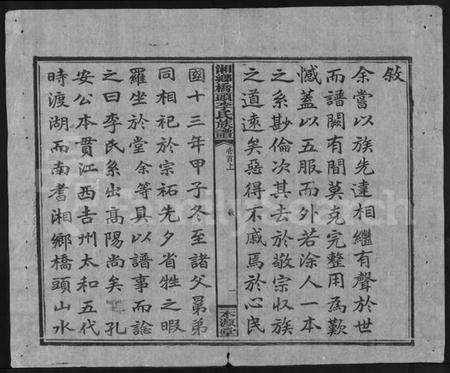 敘
余嘗以族先達相繼有聲於世
而譜闕有間莫克完整用為歎
憾蓋以五服而外若涂人一本
之系尠倫次其去於敬宗收族
之道遠矣惡得不戚焉於心民
湘鄉橋頭李氏族譜
卷首上
敘
一
本源堂
國十三年甲子冬至諸父羣弟
同相祀於宗祏先夕省牲之暇
羅坐於堂余等具以譜事而諗
之曰李氏系出高陽尚矣 孔
安公本貫江西吉州太和五代
時渡湖而南耆湘鄉橋頭山水